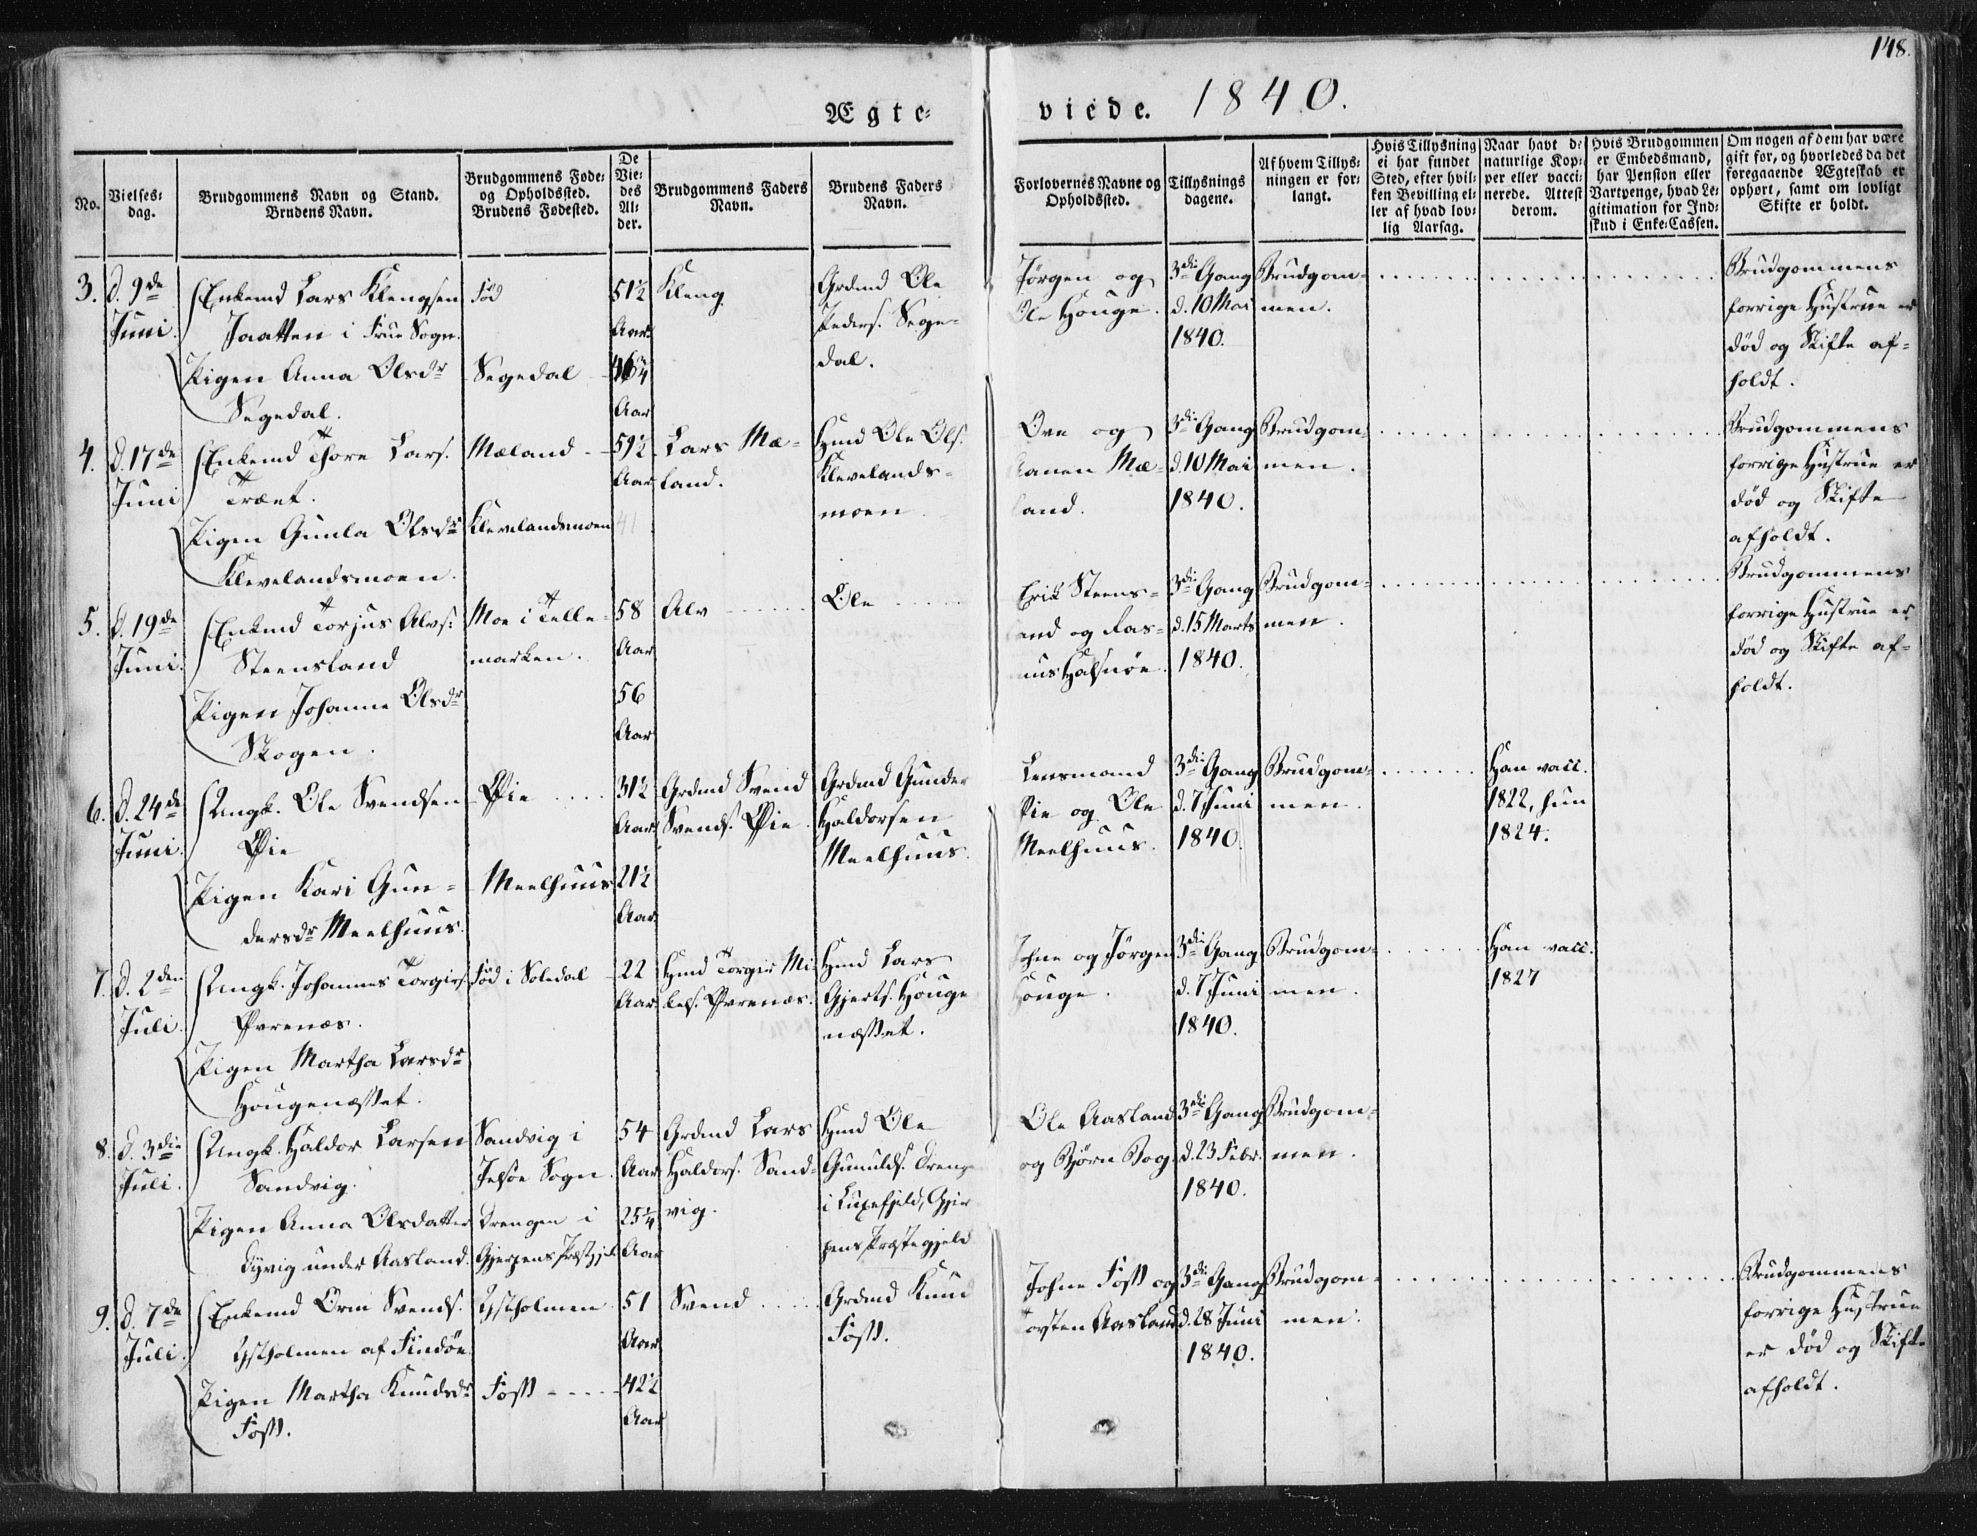 148.
Ægte-
viede. 1840.
No.
Vielses-
dag.
Brudgommens Navn og Stand.
Brudens Navn.
Brudgommens Føde-
og Opholdssted.
Brudens Fødested.
De
Vie-
des
Al-
der.
Brudgommens Faders
Navn.
Brudens Faders
Navn.
Forlovernes Navne og
Opholdssted.
Tillysnings
dagene.
Af hvem Tillys-
ningen er for-
langt.
Hvis Tillysning
ei har fundet
Sted, efter hvil-
ken Bevilling el-
ler af hvad lov-
lig Aarsag.
Naar havt de
naturlige Kop-
per eller vacci-
nerede. Attest
derom.
Hvis Brudgommen
er Embedsmand,
har Pension eller
Vartpenge, hvad Le-
gitimation for Ind-
skud i Enke-Cassen.
Om nogen af dem har være
gift for, og hvorledes da det
foregaaende Ægteskab er
ophørt, samt om lovligt
Skifte er holdt.
3.
d. 9de
Juni.
Enkemd Lars Klengsen
Jaatten i Frue Sogn.
Pigen Anna Olsdr
Segedal.
Fød
Segedal
51½
Aar.
Aar
Kleng
Grdmd Ole
Peders. Sege-
dal.
Jørgen og
Ole Houge.
3di Gang
d. 10 Mai
1840.
Brudgom-
men.
Brudgommens
forrige Hustrue er
død og Skifte af-
holdt.
4.
d. 17de
Juni
Enkemd Thore Lars.
Træet.
Pigen Gunla Olsdr
Klevelandsmoen.
Mæland
Klevelandsmoen
59½
Aar
41
Lars Mæ-
land.
Hmd Ole Ols.
Klevelands-
moen
Ove og
Mæ-
land.
3di Gang
d. 10 Mai
1840.
Brudgom-
men.
Brudgommens
forrige Hustrue er
død og Skifte
afholdt.
5.
d. 19de
Juni.
Enkmd Torjus Alvs:
Steensland
Pigen Johanne Olsdr
Skogen.
Moe i Telle-
marken.
58
Aar
56
Aar
Alv
Ole
Erik Steens-
land og Ras-
mus Halsnøe.
3di Gang
d. 15 Marts
1840.
Brudgom-
men.
Brudgommens
forrige Hustrue er
død og Skifte af-
holdt.
6.
d. 24de
Juni.
Ungk. Ole Svendsen
Øie
Pigen Kari Gun-
dersdr Meelhuus.
Øie
Meelhuus
31½
Aar.
21½
Aar.
Grdmd Svend
Svends. Øie.
Grdmd Gunder
Haldorsen
Meelhuus.
Lensmand
Øie og Ole
Meelhuus.
3di Gang
d. 7 Juni
1840.
Brudgom-
men.
Han vacc.
1822, hun
1824.
7.
d. 2den
Juli.
Ungk. Johannes Torgiers.
Øvrenæs.
Pigen Martha Larsdr
Hougenæsset.
Fød i Soledal
22
Aar.
Hmd Torgier Mi-
kels. Øvrenæs.
Hmd Lars
Gjerts. Houge
næsset.
Johne og Jørgen
Houge.
3di Gang
d. 7 Juni
1840.
Brudgom-
men.
Han vacc.
1827
8.
d. 3die
Juli.
Ungk. Haldor Larsen
Sandvig.
Pigen Anna Olsdatter
under Aasland.
Sandvig i
Jelsøe Sogn.
Drengen i
Gjerpens Præstgjeld
54
Aar
25¼
Aar
Grdmd Lars
Haldors. Sand-
vig.
Hmd Ole
Gunulds.
i Luxefjeld, Gjer
pens Præstegjeld
Ole Aasland
og Bjørn Bog.
3di Gang
d. 23 Febr.
1840.
Brudgom-
men.
9.
d. 7de
Juli.
Enkemd Orm Svends.
Ystholmen af Findøe
Pigen Martha Knudsdr
Foss.
Ystholmen
Foss
51
Aar
42½
Aar
Svend
Grdmd Knud
Foss.
Johne Foss og
Torsten Aasland
3di Gang
d. 28 Juni
1840.
Brudgom-
men.
Brudgommens
forrige Hustrue
er død og Skifte
afholdt.